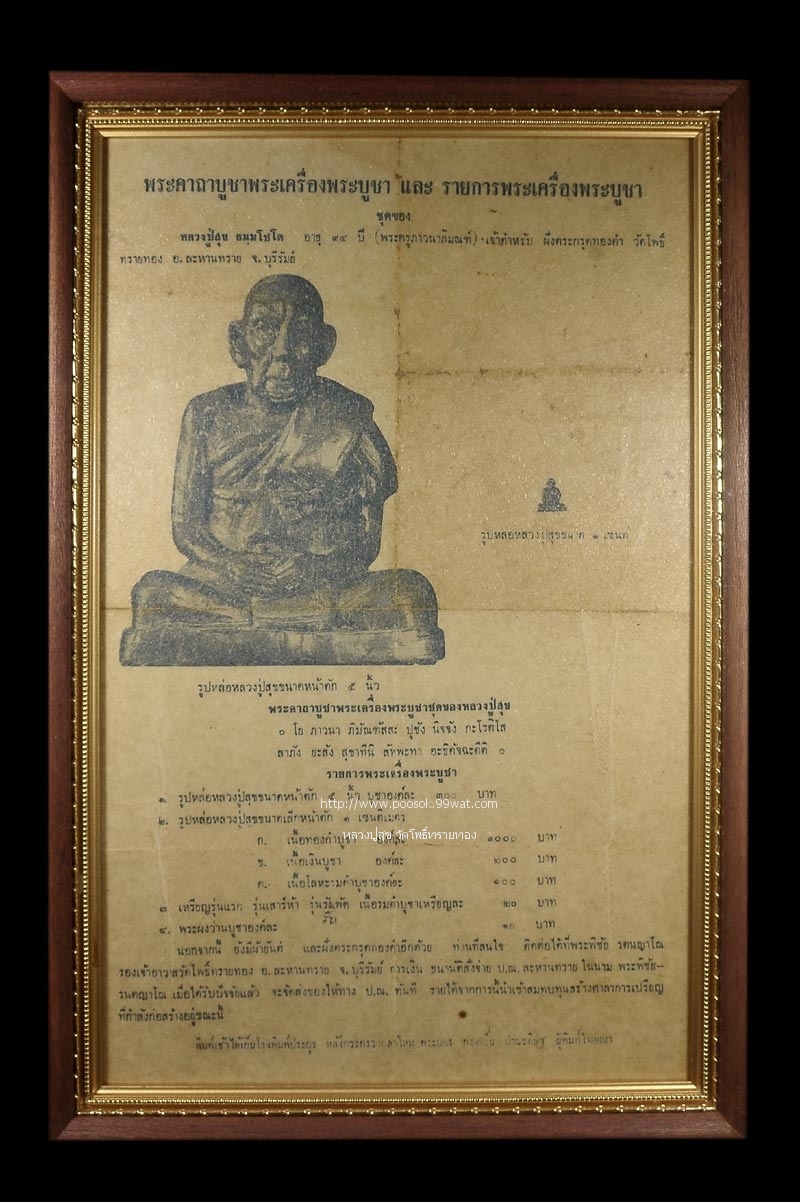 พระคาถาบูชาพระเครื่องพระบูชา และ รายการพระเครื่องพระบูชา
ชุดของ
หลวงปู่สุข ธมมโชโต อายุ ๙๔ ปี (พระครูภาวนาภิมณฑ์) เจ้าตำหรับ ผึ้งตระกรุดทองคำ วัดโพธิ์
ทรายทอง อ. ละหานทราย จ. บุรีรัมย์
รูปหล่อหลวงปู่สุขขนาด ๑ เซนต์
รูปหล่อหลวงปู่สุขขนาดหน้าตัก ๕ นิ้ว
พระคาถาบูชาพระเครื่องพระบูชาชุดของหลวงปู่สุข
๐ โย ภาวนา ภิมัณฑัสสะ ปูชัง นิจจัง กะโรติโส
ลาภัง ยะสัง สุขาทีนิ สัพพะทา อะธิคัจฉะตีติ ๐
รายการพระเครื่องพระบูชา
๑. รูปหล่อหลวงปู่สุขขนาดหน้าตัก ๕ นิ้ว บูชาองค์ละ ๓๐๐ บาท
http://www.poosok.99wat.com
๒. รูปหล่อหลวงปู่สุขขนาดเล็กหน้าตัก ๑ เซนติเมตร
หลวงปู่สุข วัดโพธิ์ทรายทอง
ก. เนื้อทองคำบูชา องค์ละ ๑๐๐๐ บาท
ข. เนื้อเงินบูชา องค์ละ ๒๐๐ บาท
ค. เนื้อโลหะรมดำบูชาองค์ละ ๑๐๐ บาท
๓ เหรียญรุ่นแรก รุ่นเสาร์ห้า เนื้อรมดำบูชาเหรียญละ ๒๐ บาท
๔. พระผงว่านบูชาองค์ละ ๑๐ บาท
นอกจากนี้ ยังมีผ้ายันต์ และผึ้งตระกรุดทองคำอีกด้วย ท่านที่สนใจ ติดต่อได้ที่พระพิชัย รตนญาโณ
รองเจ้าอาวาสวัดโพธิ์ทรายทอง อ. ละหานทราย จ. บุรีรัมย์ การเงิน ธนาณัติสั่งจ่าย ป.ณ. ละหานทราย ในนาม พระพิชัย-
รนตญาโณ เมื่อได้รับปัจจัยแล้ว จะจัดส่งของให้ทาง ป.ณ. ทันที รายได้จากการนี้นำเข้าสมทบทุนสร้างศาลาการเปรียญ
ที่กำลังก่อสร้างอยู่ขณะนี้